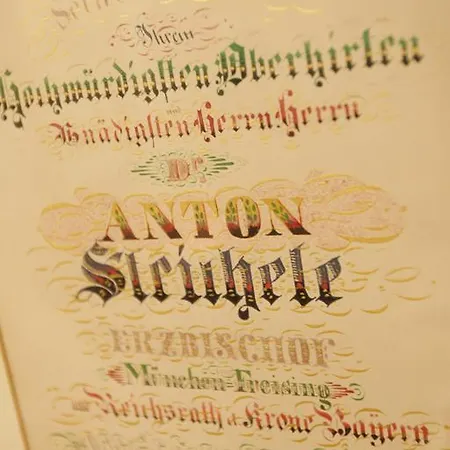 Ihrem
Hochwürdigsten Oberhirten
und
Gnädigsten Herrn Herrn
Dr
ANTON
Steichele
ERZBISCHOF
München-Freising
Reichsrath d. Krone Bayern